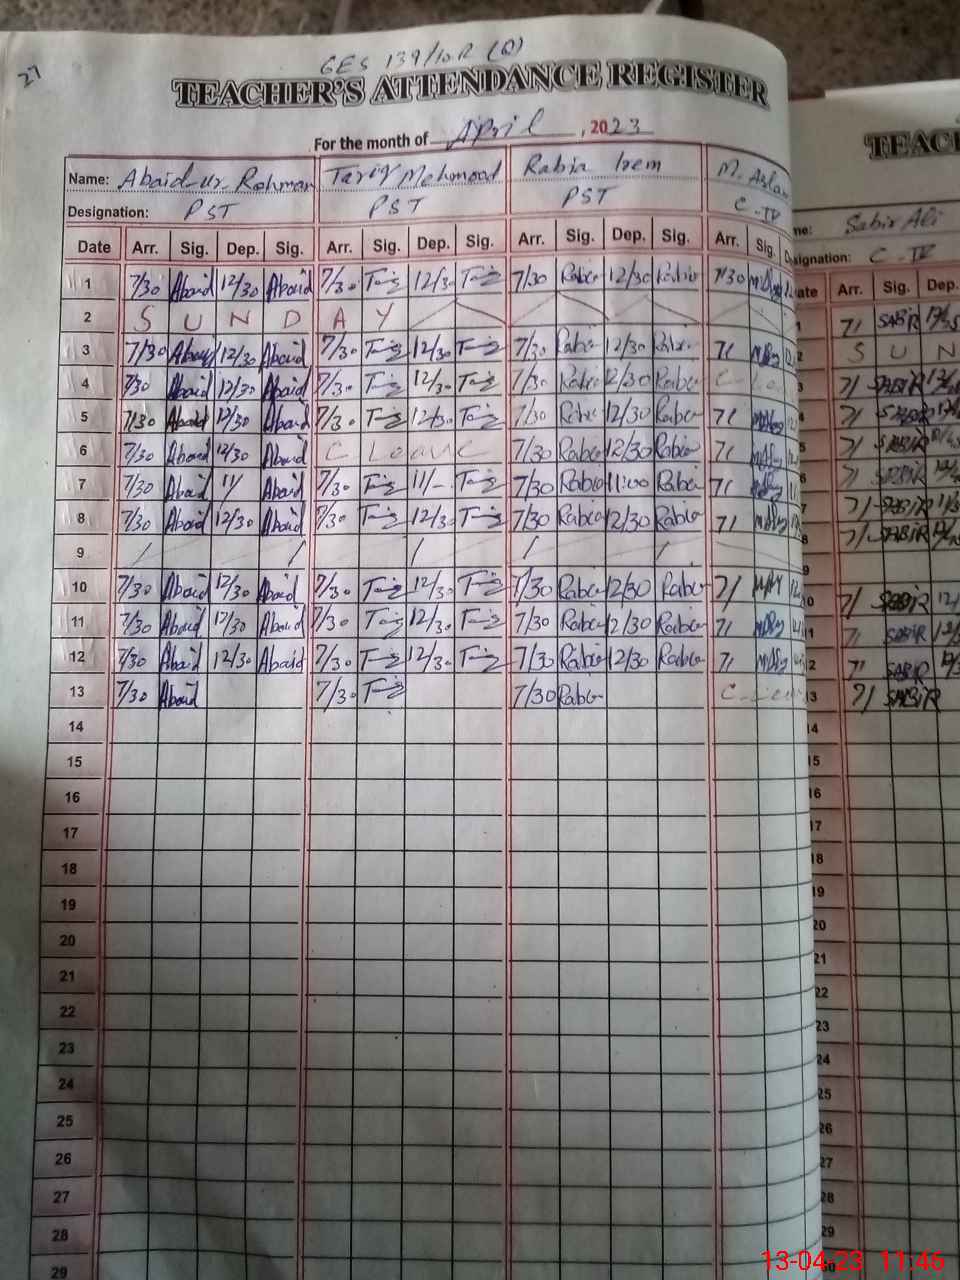 27
GES 139/10R (Q)
TEACHER'S ATTENDANCE REGISTER
For the month of April, 2023
Name: Abaid-ur-Rehman Tariq Mehmood Rabia Irem M. Asla
Designation: PST PST PST C-IV
Date Arr. Sig. Dep. Sig. Arr. Sig. Dep. Sig. Arr. Sig. Dep. Sig. Arr. Sig. D
1 7/30 Abaid 12/30 Abaid 7/30 12/30 7/30 Rabia 12/30 Rabia 7/30
2 S U N D A Y
3 7/30 Abaid 12/30 Abaid 7/30 12/30 7/30 Rabia 12/30 Rabia 7/
4 7/30 Abaid 12/30 Abaid 7/30 12/30 7/30 Rabia 12/30 Rabia C Lea
5 7/30 Abaid 12/30 Abaid 7/30 12/30 7/30 Rabia 12/30 Rabia 7/
6 7/30 Abaid 12/30 Abaid C Leave 7/30 Rabia 12/30 Rabia 7/
7 7/30 Abaid 11/ Abaid 7/30 11/- 7/30 Rabia 11:00 Rabia 7/
8 7/30 Abaid 12/30 Abaid 7/30 12/30 7/30 Rabia 12/30 Rabia 7/
9
10 7/30 Abaid 12/30 Abaid 7/30 12/30 7/30 Rabia 12/30 Rabia 7/
11 7/30 Abaid 12/30 Abaid 7/30 12/30 7/30 Rabia 12/30 Rabia 7/
12 7/30 Abaid 12/30 Abaid 7/30 12/30 7/30 Rabia 12/30 Rabia 7/
13 7/30 Abaid 7/30 7/30 Rabia
14
15
16
17
18
19
20
21
22
23
24
25
26
27
28
29
TEAC
me: Sabir Ali
signation: C-IV
ate Arr. Sig. Dep.
1 7/ SABIR
2 S U N
3 7/ SABIR
4 7/ SABIR
5 7/ SABIR
6 7/ SABIR
7 7/ SABIR
8 7/ SABIR
9
10 7/ SABIR
11 7/ SABIR
12 7/ SABIR
13 7/ SABIR
14
15
16
17
18
19
20
21
22
23
24
25
26
27
28
29
30
13-04-23 11:46